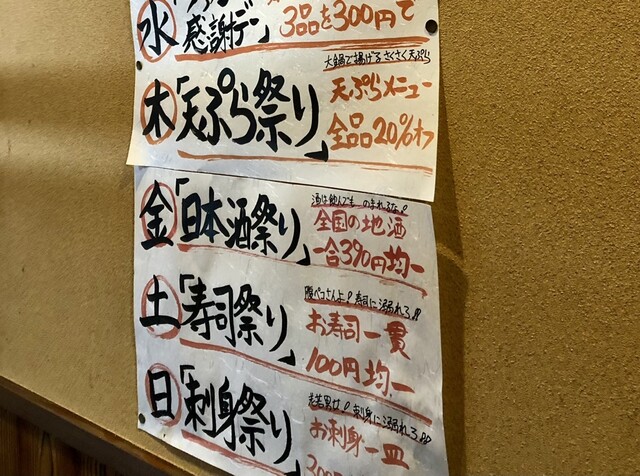 水
感謝デー」
3品を300円で
大鍋で揚げるさくさく天ぷら
木「天ぷら祭り」
天ぷらメニュー
全品20%オフ
酒は飲んでものまれるな!
金「日本酒祭り」
全国の地酒
一合390円均一
腹ペコさんよ!寿司に溺れろ!!
土「寿司祭り」
お寿司一貫
100円均一
老若男女!刺身に溺れろ!!
日「刺身祭り」
お刺身一皿